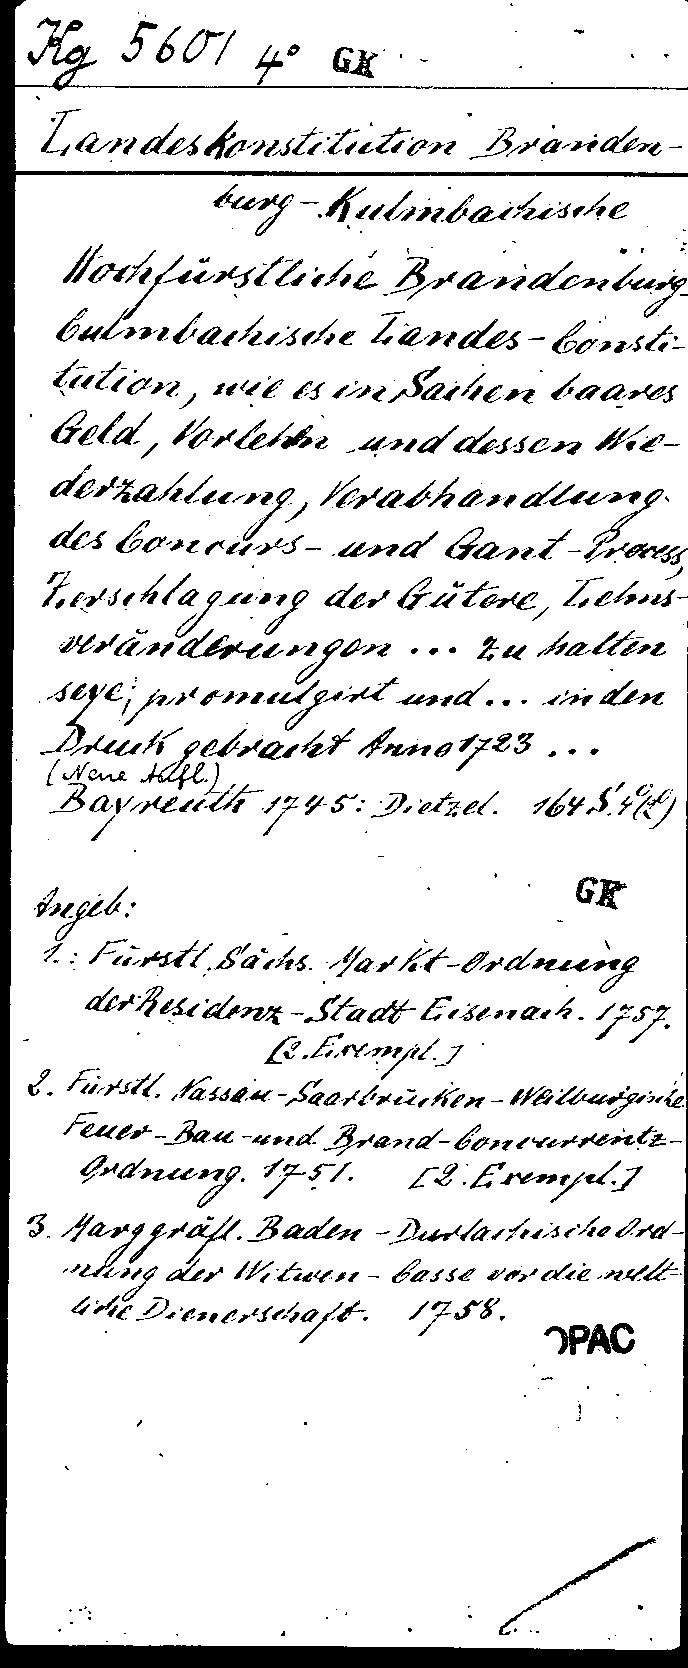 Kg 5601 4° GK
Landeskonstitution Branden-
burg-Kulmbachische
Hochfürstliche Brandenburg-
Culmbachische Landes-Consti-
tution, wie es in Sachen baares
Geld, Vorlehn und dessen Wie-
derzahlung, Verabhandlung
des Concurs- und Gant-Process,
Zerschlagung der Gütere, Lehns-
veränderungen ... zu halten
seye, promulgirt und ... in den
Druck gebracht Anno 1723 ...
(Neue Aufl.)
Bayreuth 1745: Dietzel. 164 S. 4°
GK
Angeb:
1.: Fürstl. Sächs. Markt-Ordnung
der Residenz-Stadt Eisenach. 1757.
[2. Exempl.]
2. Fürstl. Nassau-Saarbrücken-Weilburgische
Feuer-Bau-und Brand-Concurrentz-
Ordnung. 1751. [2. Exempl.]
3. Marggräfl. Baden-Durlachische Ord-
nung der Witwen-Casse vor die welt-
liche Dienerschaft. 1758.
OPAC